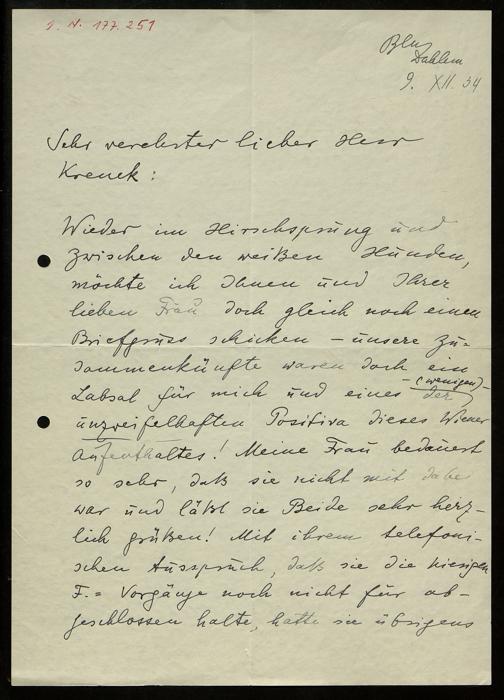 J. N. 177.251
Bln
Dahlem
9. XII. 34
Sehr verehrter lieber Herr
Krenek:
Wieder im Hirschsprung und
zwischen den weißen Hunden,
möchte ich Ihnen und Ihrer
lieben Frau doch gleich noch einen
Briefgruss schicken – unsere Zu=
sammenkünfte waren doch ein
Labsal für mich und eines – der (wenigen) –
unzweifelhaften Positiva dieses Wiener
Aufenthaltes! Meine Frau bedauert
so sehr, daß sie nicht mit dabei
war und läßt sie Beide sehr herz-
lich grüßen! Mit ihrem telefoni-
schen Ausspruch, daß sie die hiesigen
F.= Vorgänge noch nicht für ab-
geschlossen halte, hatte sie übrigens